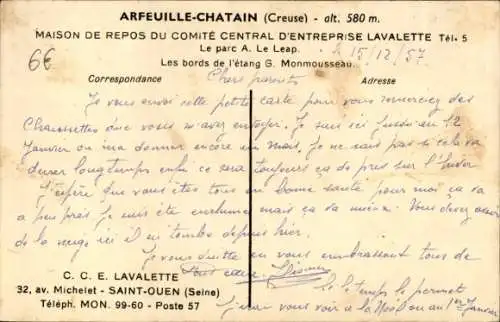 ARFEUILLE-CHATAIN (Creuse) - alt. 580 m.
MAISON DE REPOS DU COMITÉ CENTRAL D'ENTREPRISE LAVALETTE Tél. 5
6€
Le parc A. Le Leap.
le 15/12/57
Les bords de l'étang G. Monmousseau.
Correspondance
Adresse
Chers parents
Je vous envoi cette petite carte pour vous remerciez des
Chaussettes que vous m'avez envoyer. Je suis ici jusqu'au 12
Janvier on m'a donner encore un mois, Je ne sais pas si cela va
durer longtemps enfin ce sera toujours ça de pris sur l'hiver
J'espère que vous êtes tous en bonne santé pour moi ça va
à peu près je suis été enrhumé mais ça va mieux. Vous devez avoir
de la neige ici il en tombe depuis hier.
Je vous quitte en vous embrassant tous de
tout cœur.
C. C. E. LAVALETTE
32, av. Michelet - SAINT-OUEN (Seine)
Téléph. MON. 99-60 - Poste 57
si le temps le permet
j'irai vous voir à la Noël ou au 1er Janvier